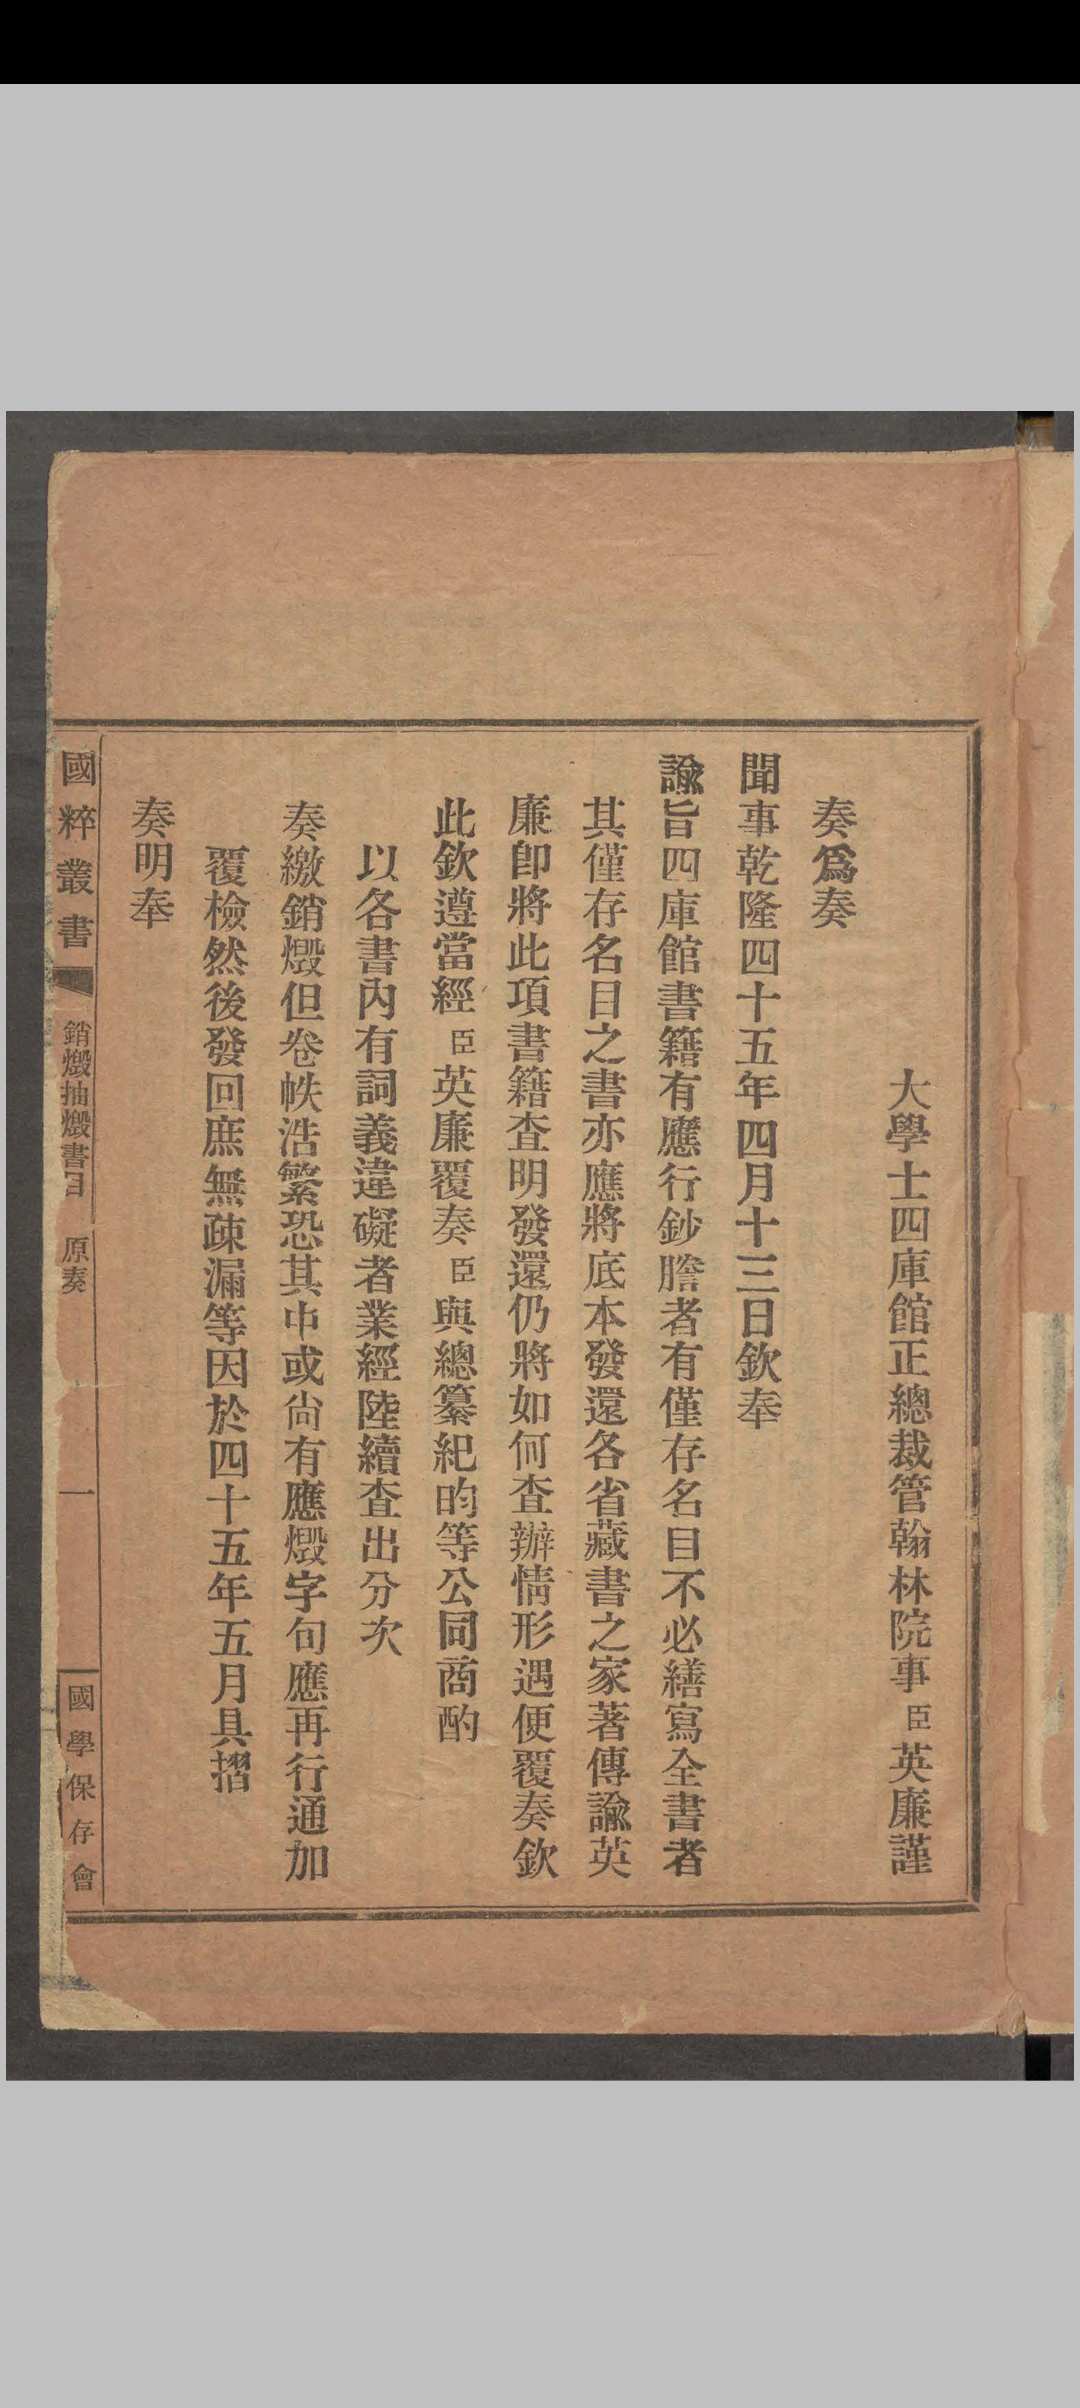 大學士四庫館正總裁管翰林院事臣英廉謹
奏爲奏
聞事乾隆四十五年四月十三日欽奉
諭旨四庫館書籍有應行鈔謄者有僅存名目不必繕寫全書者
其僅存名目之書亦應將底本發還各省藏書之家著傳諭英
廉卽將此項書籍查明發還仍將如何查辦情形遇便覆奏欽
此欽遵當經臣英廉覆奏臣與總纂紀昀等公同商酌
以各書內有詞義違礙者業經陸續查出分次
奏繳銷燬但卷帙浩繁恐其中或尙有應燬字句應再行通加
覆檢然後發回庶無疎漏等因於四十五年五月具摺
奏明奉
國粹叢書
銷燬抽燬書目 原奏
一
國學保存會